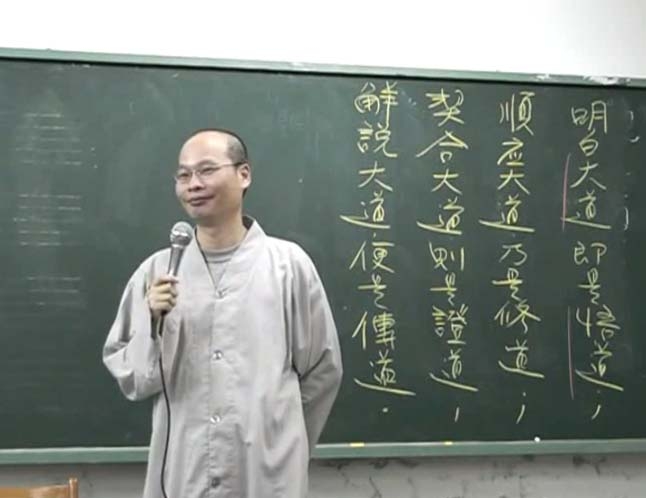 明白大道即是悟道；
順应大道乃是修道；
契合大道則是證道；
解說大道便是傳道．